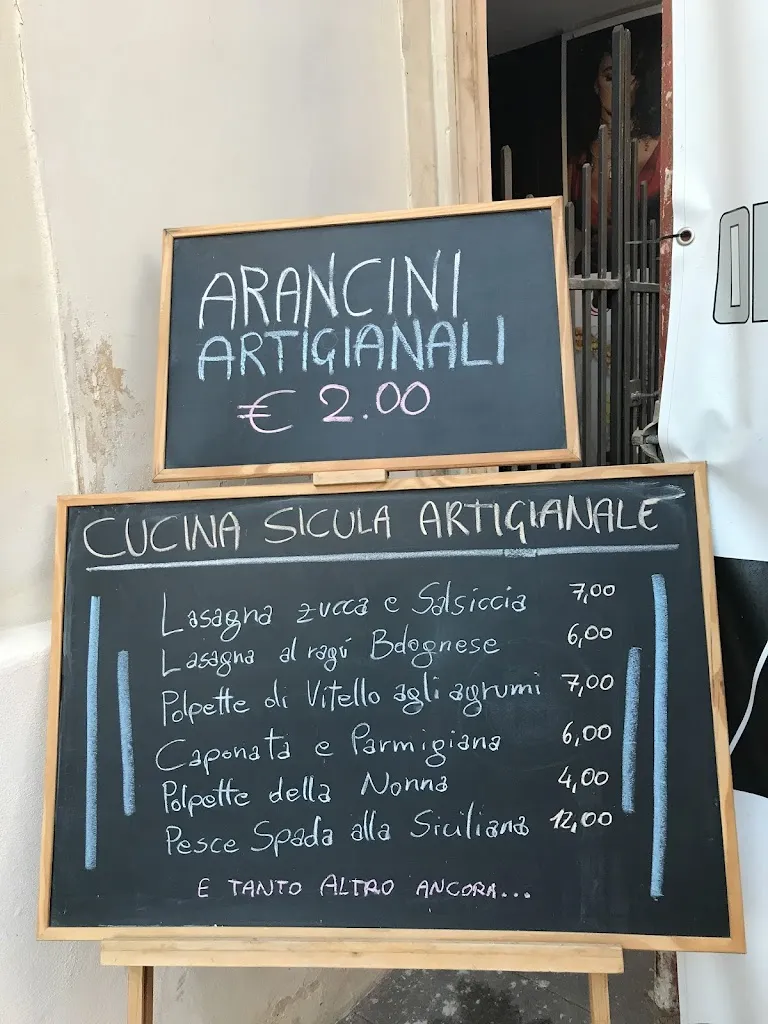 ARANCINI
ARTIGIANALI
€ 2.00
CUCINA SICULA ARTIGIANALE
Lasagna zucca e Salsiccia 7,00
Lasagna al ragú Bolognese 6,00
Polpette di Vitello agli agrumi 7,00
Caponata e Parmigiana 6,00
Polpette della Nonna 4,00
Pesce Spada alla Siciliana 12,00
E TANTO ALTRO ANCORA...